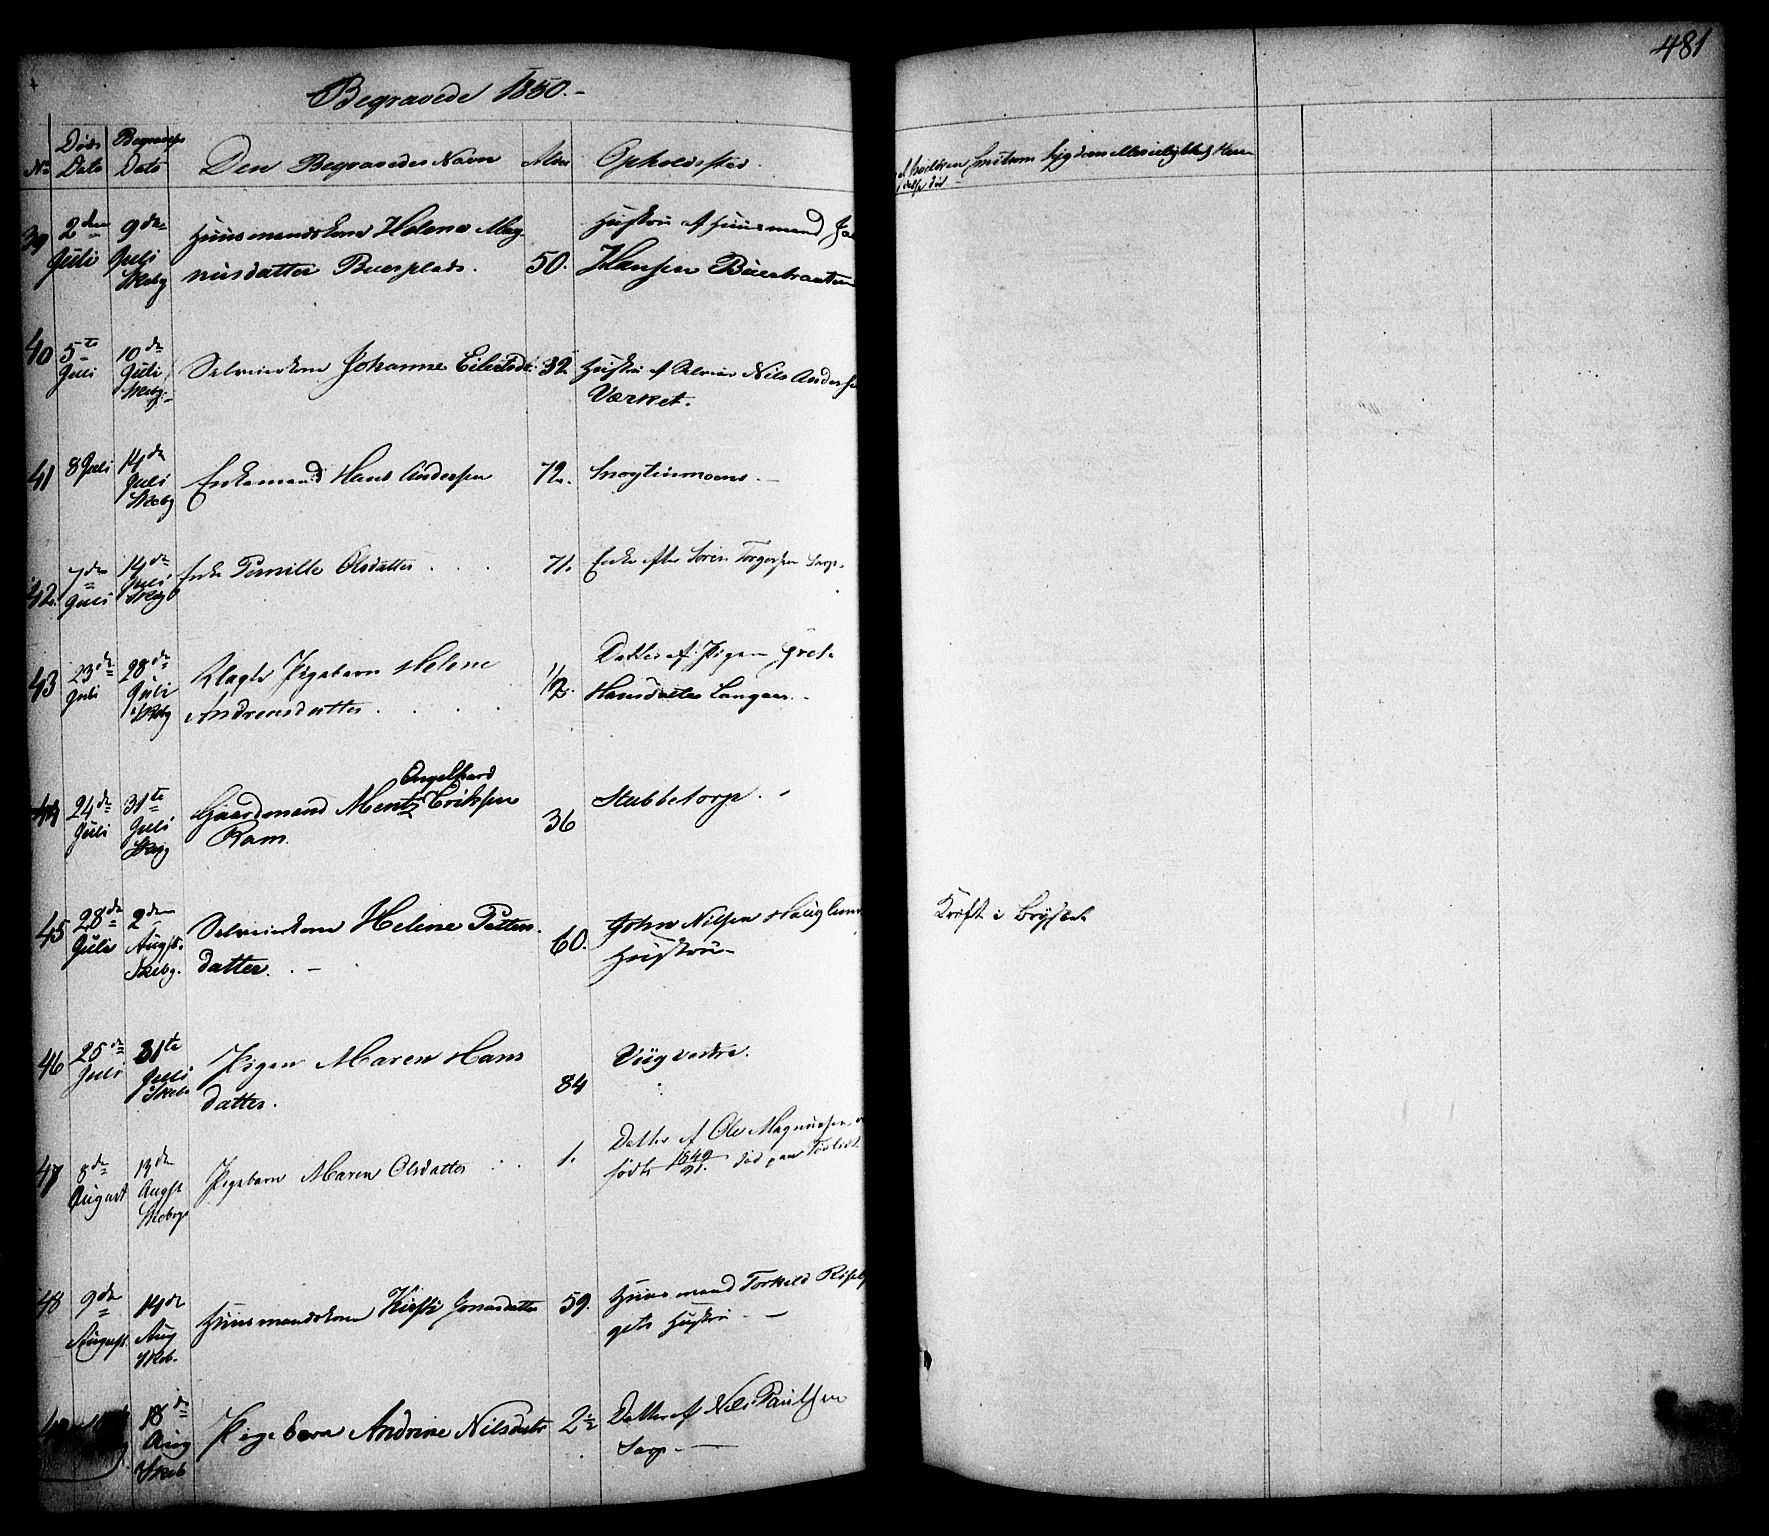 481
Begravede 1850.-
No Døds Dato Begravelses Dato Den Begravedes Navn Alder Opholdssted
39 2den Juli 9de Juli Skebg Huusmandskone Helene Mag-
nusdatter Buerplads. 50. Hustru af Huusmand
Hansen Buerbraaten
40 5te Juli 10de Juli Skebg. Selveierkone Johanne Eilertsd. 32 Hustru af Selveier Nils Anders
Værket.
41 8 Juli 14de Juli Skebg Enkemand Hans Andersen 72.
42. 7de Juli 14de Juli Skbg Enke Pernille Olsdatter . . . 71. Enke efter Søren Torgersen Sarp.
43 23de Juli 28de Juli Skbg Uægte Pigebarn Helene
Andreasdatter . . . . 1/2. Datter af Pigen Grete
Hansdatter Langaas.-
44 24de Juli 31te Juli Skbg Gaardmand Mentz Engelhard Eriksen
Ram. 36 Stubbetorp. -
45 28de Juli 2den Augst. Skebg. Selveierkone Helene Petters.
datter. . - 60. John Nilsen Hauglund
Hustrue-
Kræft i Brystet
46 25de Juli 31te Juli Skeb Pigen Maren Hans
datter. 84 Viig vestre.
47 8de August 13de Augst Skebeg Pigebarn Maren Olsdatter . . 1. Datter af Ole Magnussen
født 1849 død paa
48 9de August. 14de Aug Skeb. Huusmandskone Kirsti Jonasdatter 59. Huusmand Torkeld
gets Hustru - -
18de Aug Skeb Pigebarn Andrine Nilsdatr 2½ Datter af Nils Paulsen
Sarp. -